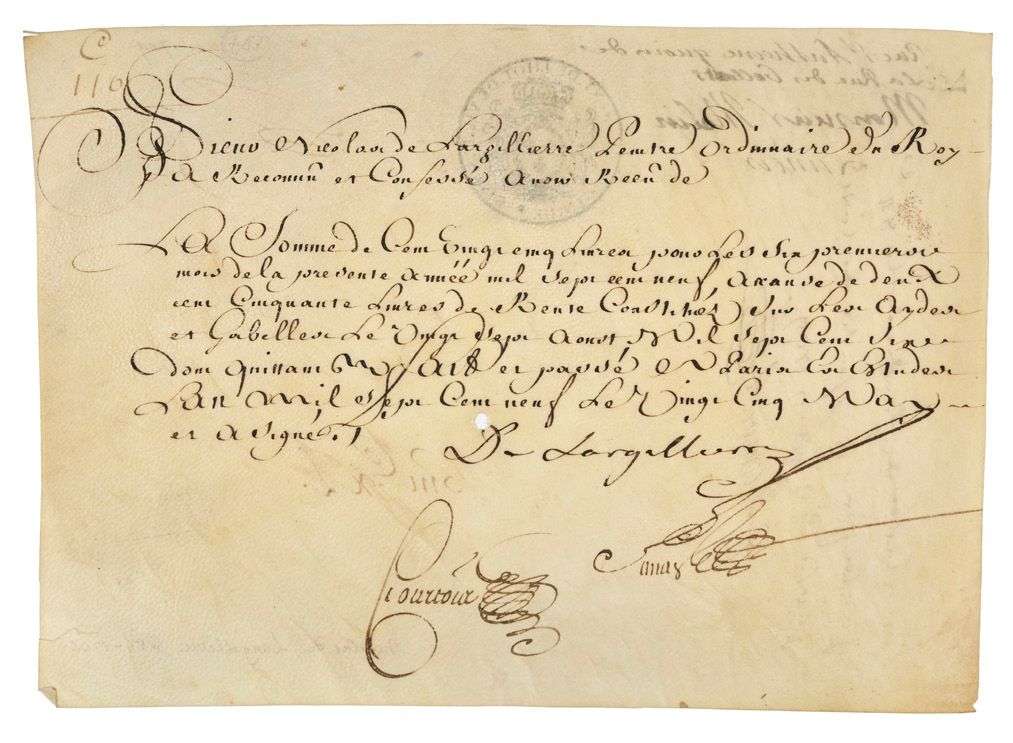 Ce
116
Sieur Nicolas de Largillierre Peintre Ordinnaire du Roy
A Reconnu et Confessé avoir Receu de
La Somme de Cent Vingt cinq Livres pour Les Six premiers
mois de la presente Année mil sept cent neuf, a cause de deux
cent Cinquante Livres de Rente Constitués Sur Les Aydes
et Gabelles Le Vingt Sept Aoust Mil Sept Cent Six
dont quittant &c. fait et passé A Paris Es Etudes
L'an Mil Sept Cent neuf Le Vingt Cinq May
et a Signé
De Largillierre
Courtois